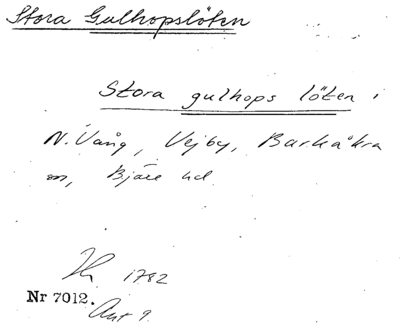 Stora Gulhopslöten
Stora gulhops löten i
N. Vång, Vejby, Barkåkra
sn, Bjäre hd
1782
Nr 7012.
Akt 9.